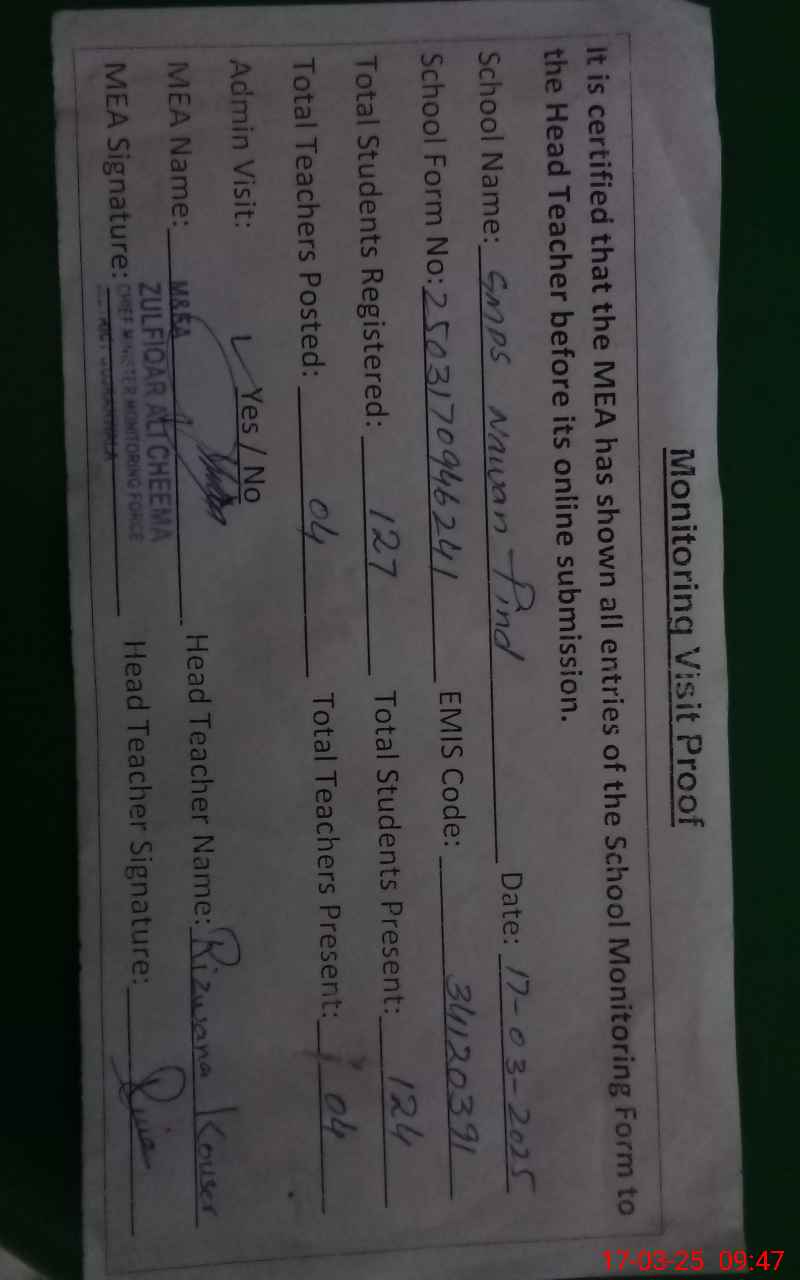 Monitoring Visit Proof
It is certified that the MEA has shown all entries of the School Monitoring Form to
the Head Teacher before its online submission.
School Name: GMPS Nawan Pind Date: 17-03-2025
School Form No: 2503170946241 EMIS Code: 34120391
Total Students Registered: 127 Total Students Present: 124
Total Teachers Posted: 04 Total Teachers Present: 04
Admin Visit: Yes / No
MEA Name: Head Teacher Name: Rizwana Kouser
MEA Signature: Head Teacher Signature:
M&EA
ZULFIQAR ALI CHEEMA
CHIEF MINISTER MONITORING FORCE
17-03-25 09:47